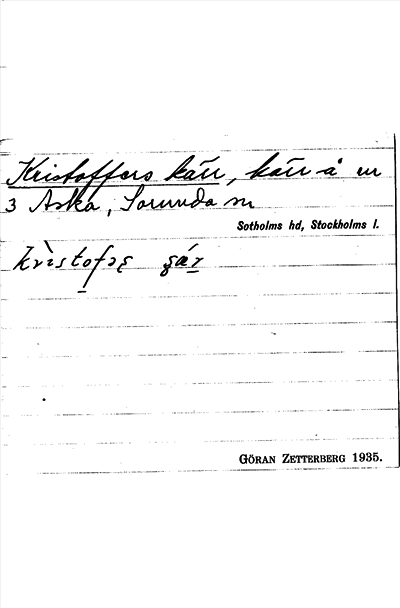 Kristoffers kärr, kärr å nr
3 Aska, Sorunda sn
Sotholms hd, Stockholms l.
GÖRAN ZETTERBERG 1935.